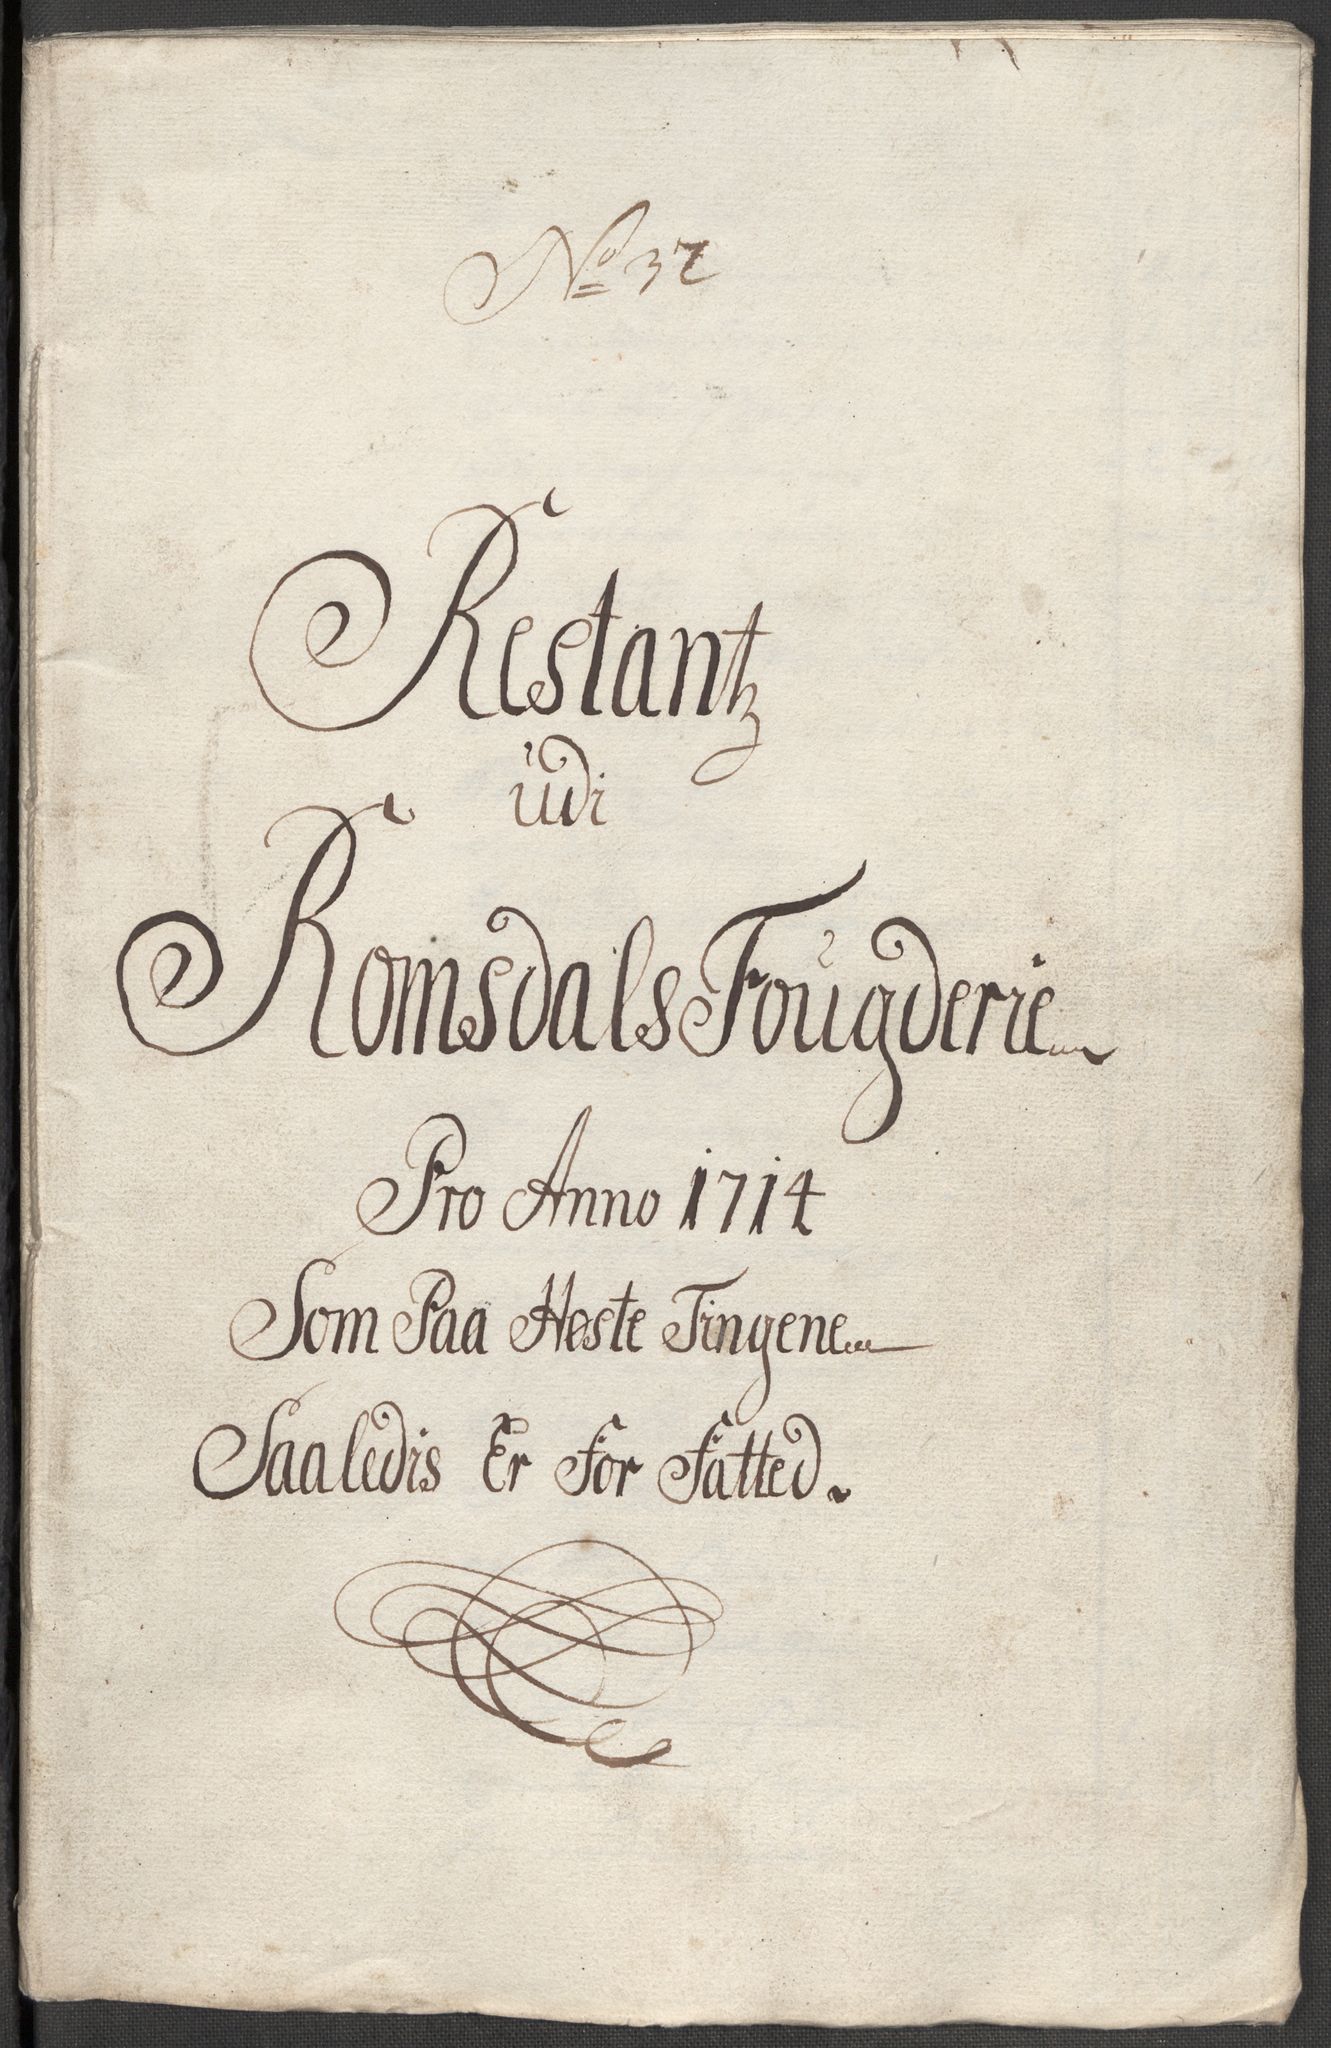 No 37
Restantz
udi
Romsdals Fougderie
Pro Anno 1714
Som Paa Høste Tingene
Saaledis Er For Fatted.